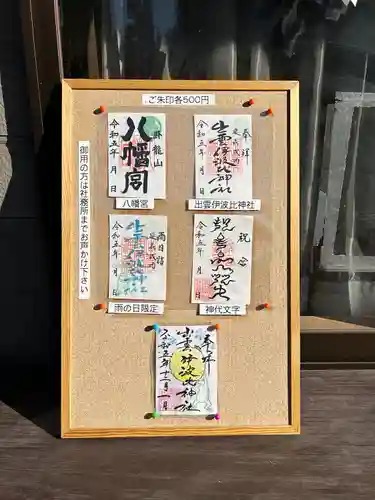 ご朱印各500円
御用の方は社務所までお声かけ下さい
卧龍山
八幡宮
令和五年 月 日
八幡宮
奉拝
出雲伊波比神社
令和五年 月 日
出雲伊波比神社
雨の日限定
令和五年 月 日
祝
令和五年 月 日
神代文字
奉拝
出雲伊波比神社
令和五年十二月一日